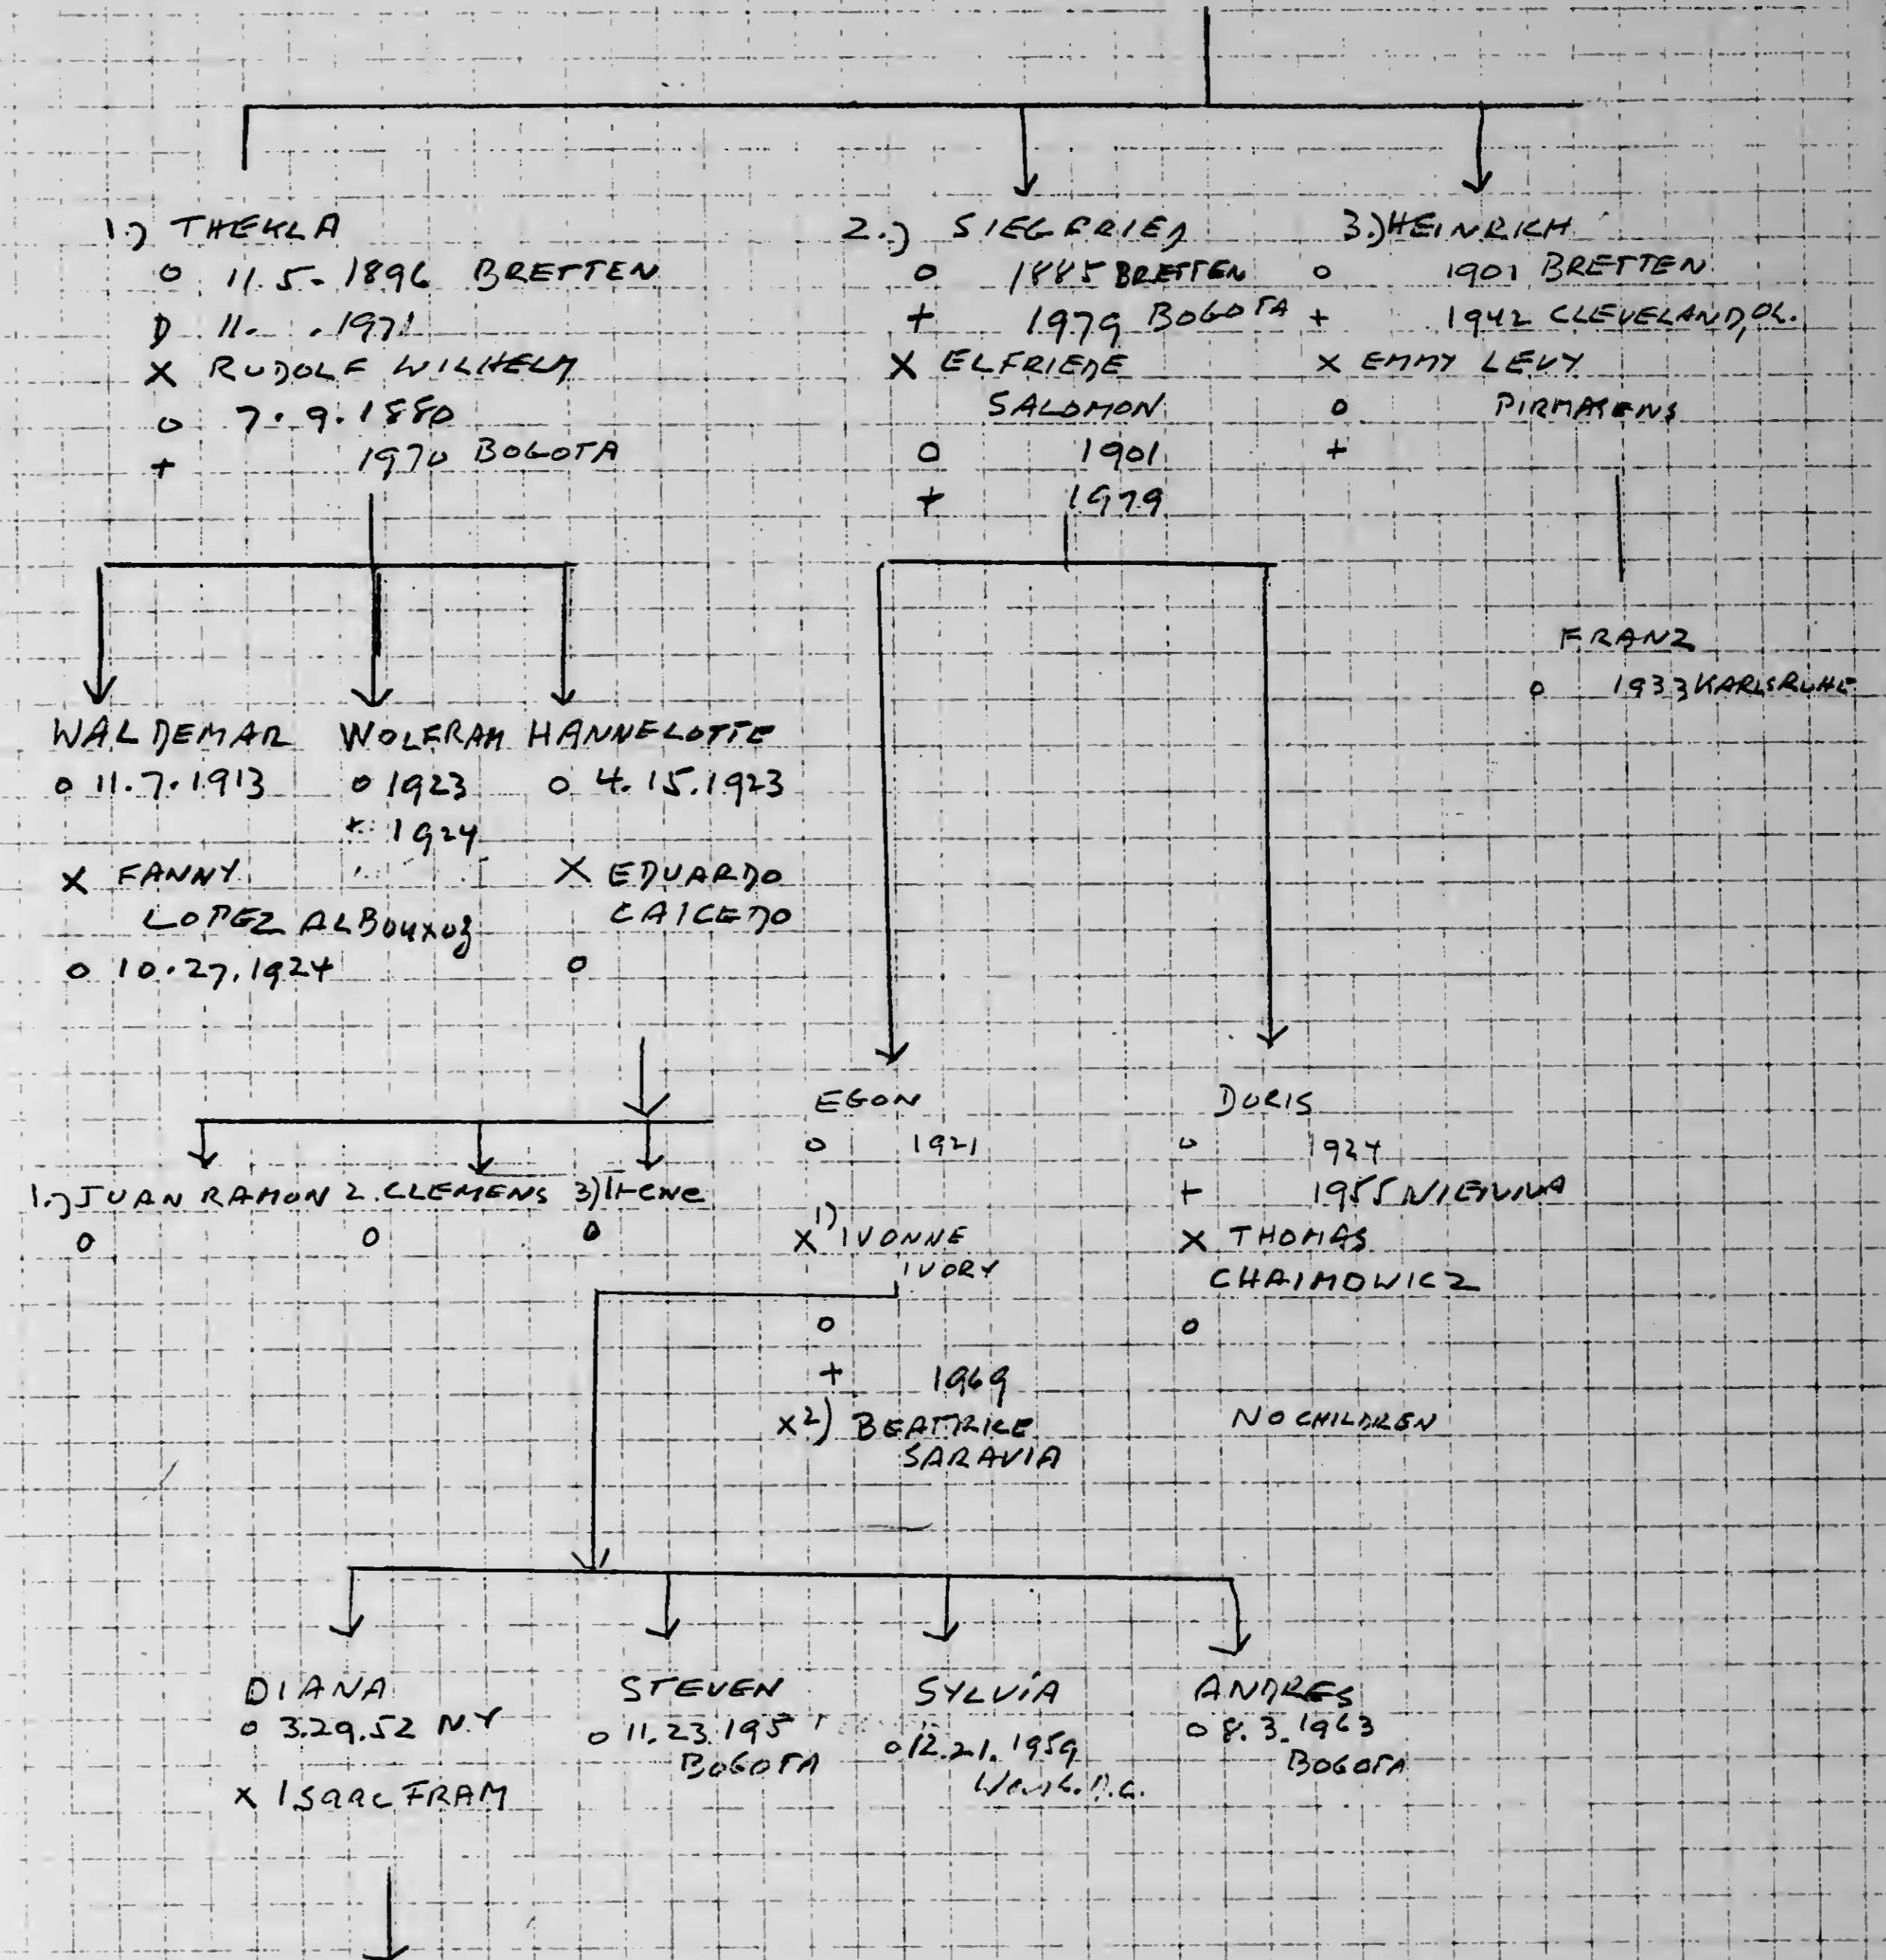 1.) THEKLA
o 11.5-1896 BRETTEN
D 11. .1971
X RUDOLF WILHELM
o 7.9.1880
+ 1970 BOGOTA
2.) SIEGFRIED
o 1885 BRETTEN
+ 1979 BOGOTA
X ELFRIEDE
SALOMON
o 1901
+ 1979
3.) HEINRICH
o 1901 BRETTEN
+ 1942 CLEVELAND, OL.
X EMMY LEVY
o PIRMASENS
+
WALDEMAR
o 11.7.1913
X FANNY
LOPEZ
o 10.27.1924
WOLFRAM
o 1923
+ 1924
HANNELOTTE
o 4.15.1923
X EDUARDO
CAICEDO
o
FRANZ
o 1933 KARLSRUHE
1.) JUAN RAMON
o
2. CLEMENS
o
3)
o
EGON
o 1921
X 1) IVONNE
IVORY
o
+ 1969
X 2) BEATRICE
SARAVIA
DORIS
o 1924
+ 1955
X THOMAS
CHAIMOWICZ
o
NO CHILDREN
DIANA
o 3.29.52 N.Y
X ISaac FRAM
STEVEN
o 11.23.195
BOGOTA
SYLVIA
o 12.21.1959
Wash. D.C.
ANDRES
o 8.3.1963
BOGOTA